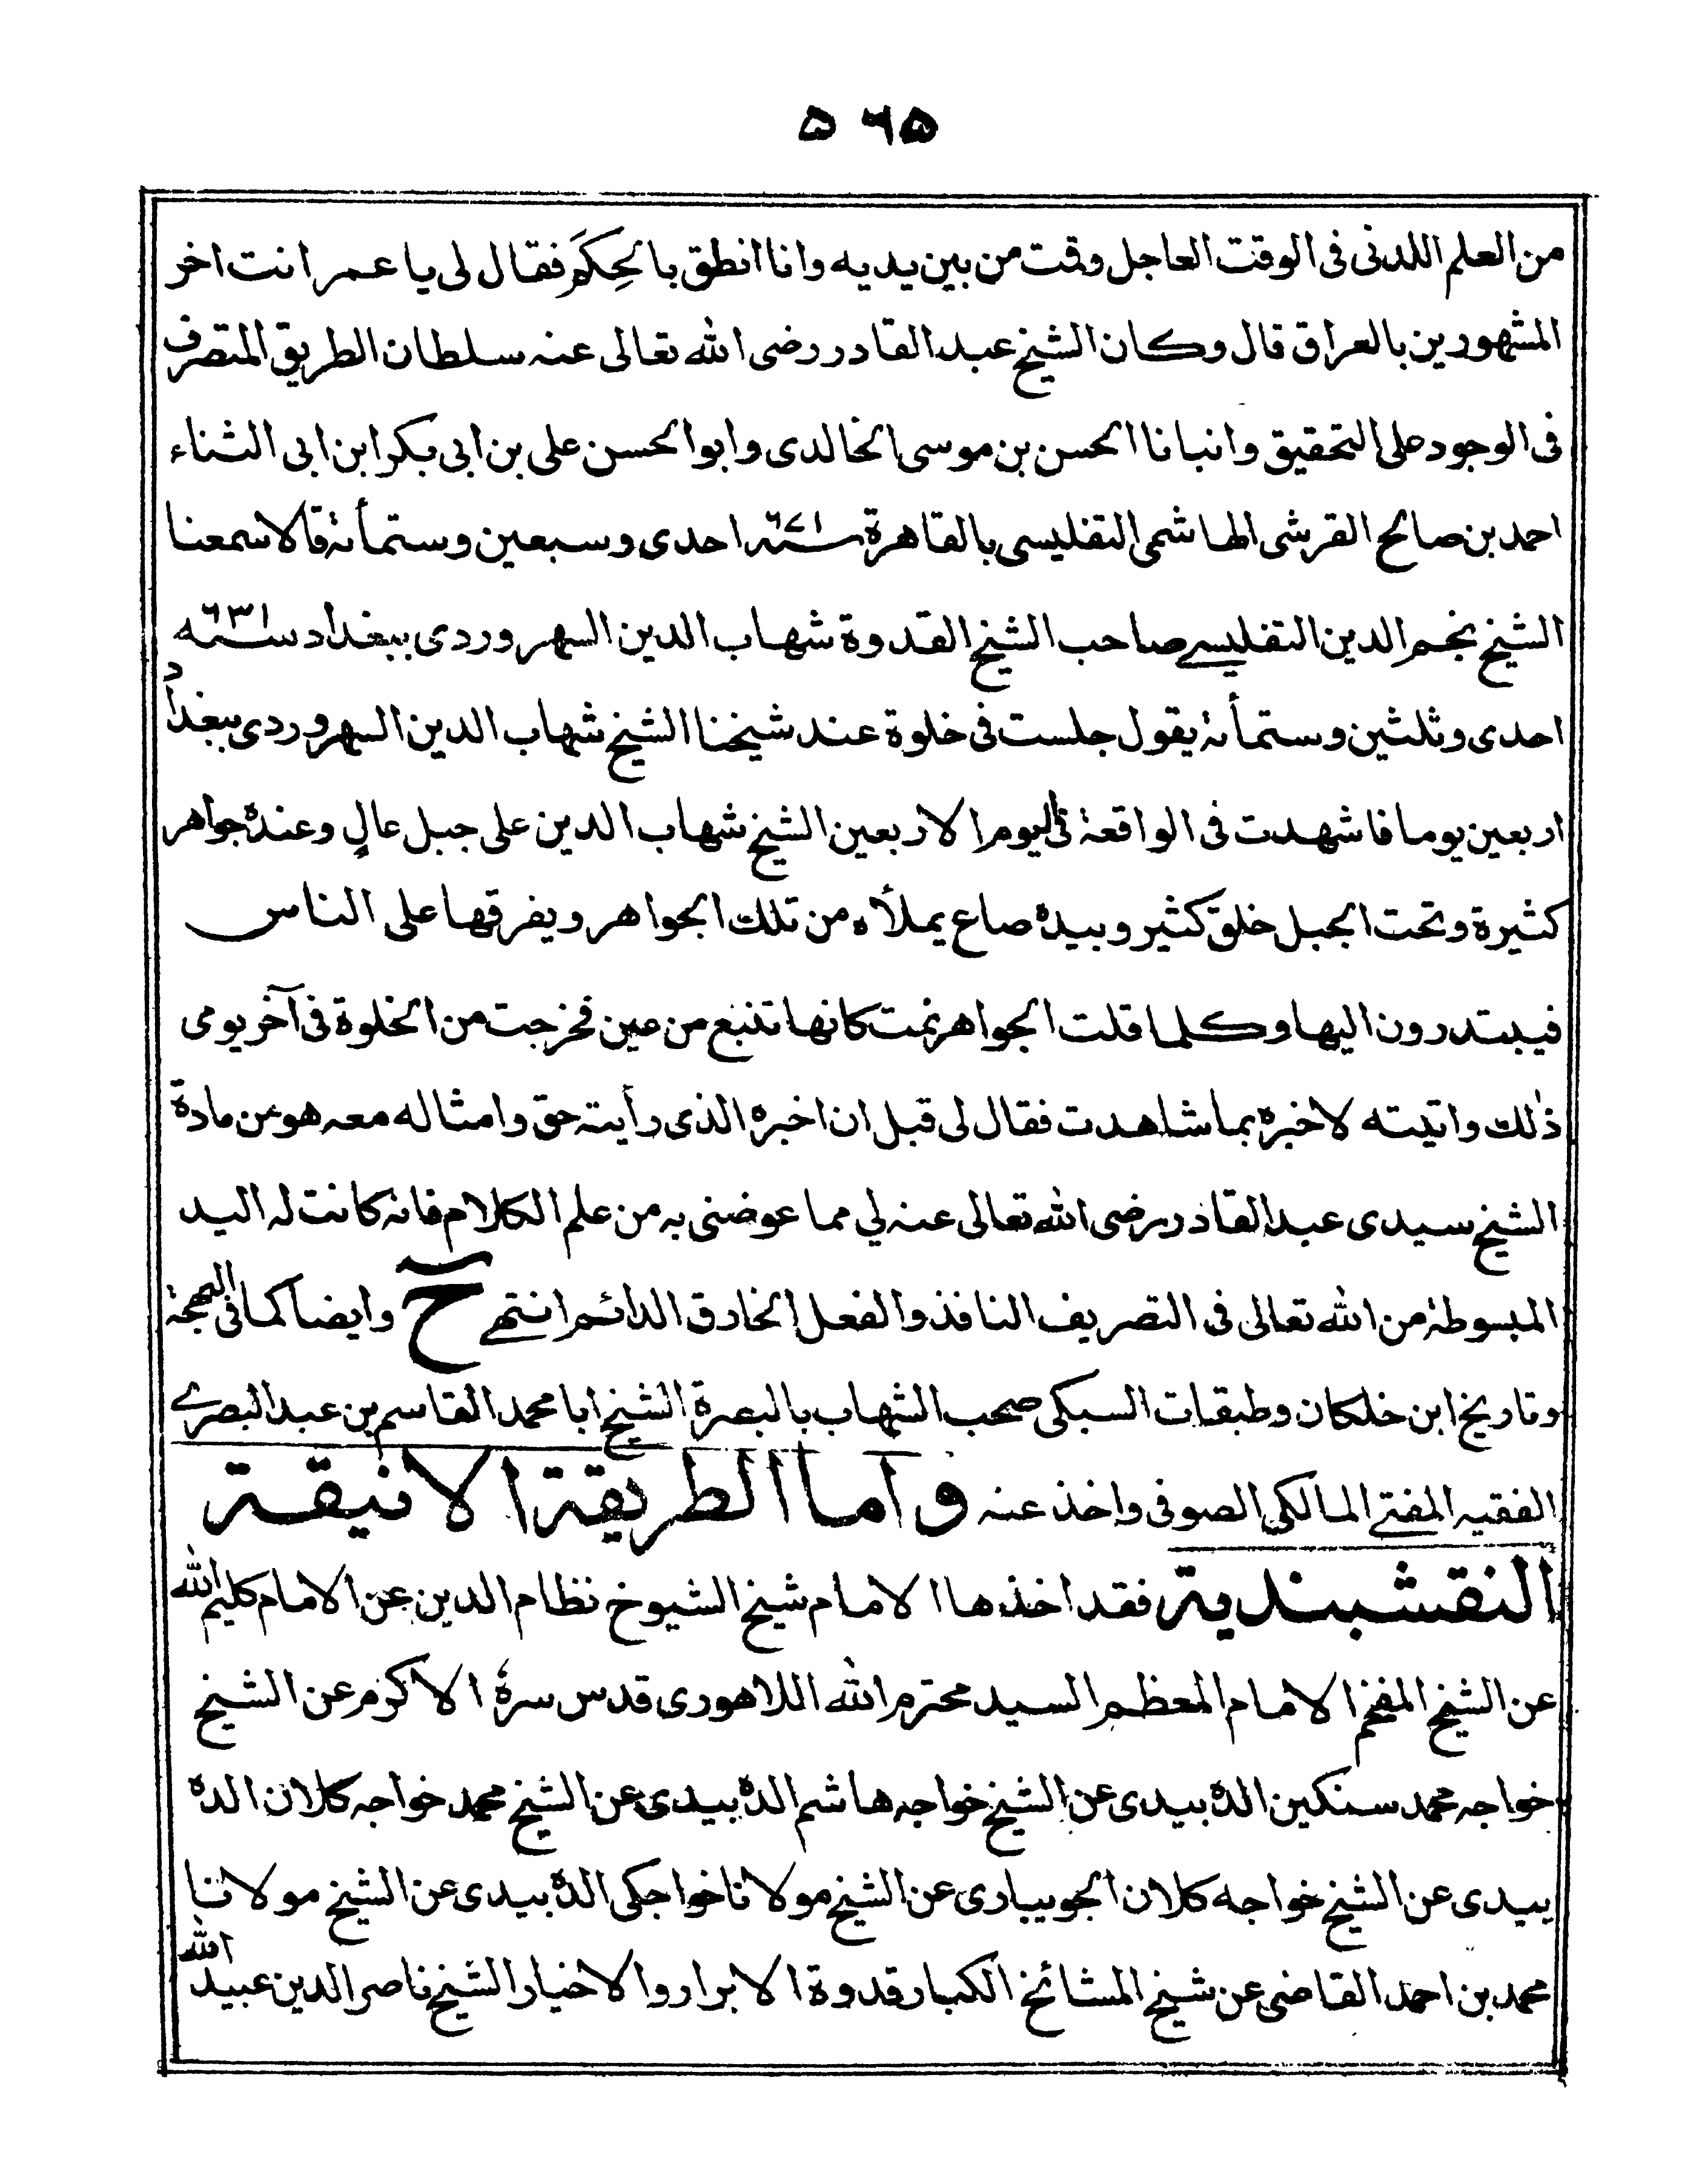 ۵۶۵
من العلم اللدنى فى الوقت العاجل وقت من بين يديه وانا انطق بالحِكَم فقال لى يا عمر انت اخر
المشهورين بالعراق قال وكان الشيخ عبد القادر رضى الله تعالى عنه سلطان الطريق المتصرف
فى الوجود على التحقيق وانبانا الحسن بن موسى الخالدى وابو الحسن على بن ابى بكر ابن ابى الثناء
احمد بن صالح القرشى الهاشمى التفليسى بالقاهرة سنة ٦٧١ احدى وسبعين وستمأنة قالا سمعنا
الشيخ نجم الدين التفليسے صاحب الشيخ القدوة شهاب الدين السهروردى ببغداد سنة ٦٣١
احدى وثلثين وستمأنة يقول جلست فى خلوة عند شيخنا الشيخ شهاب الدين السهروردى ببغداد
اربعين يوما فاشهدت فى الواقعة فى اليوم الاربعين الشيخ شهاب الدين على جبل عالٍ وعنده جواهر
كثيرة وتحت الجبل خلق كثير وبيده صاع يملأه من تلك الجواهر ويفرقها على الناس
فيبتدرون اليها وكلما قلت الجواهر نمت كانها تنبع من عين فخرجت من الخلوة فى آخر يومى
ذٰلك واتيته لاخبره بما شاهدت فقال لى قبل ان اخبره الذى رأيته حق وامثاله معه هو من مادة
الشيخ سيدى عبد القادر رضى الله تعالى عنه لي مما عوضنى به من علم الكلام فانه كانت له اليد
المبسوطة من الله تعالى فى التصريف النافذ والفعل الخارق الدائم انتهے ح وايضا كما فى البهجة
وتاريخ ابن خلكان وطبقات السبكى صحب الشهاب بالبصرة الشيخ ابا محمد القاسم بن عبد البصرے
الفقيه المفتے المالكى الصوفى واخذ عنه وآما الطريقة الانيقة
النقشبندية فقد اخذها الامام شيخ الشيوخ نظام الدين عن الامام كليم الله
عن الشيخ المفخم الامام المعظم السيد محترم الله اللاهورى قدس سرهٗ الاكرم عن الشيخ
خواجه محمد سنكين الده بيدى عن الشيخ خواجه هاشم الده بيدى عن الشيخ محمد خواجه كلان الده
بيدى عن الشيخ خواجه كلان الجويبارى عن الشيخ مولانا خواجكى الده بيدى عن الشيخ مولانا
محمد بن احمد القاضى عن شيخ المشائخ الكبار قدوة الابرار والاخيار الشيخ ناصر الدين عبيد الله